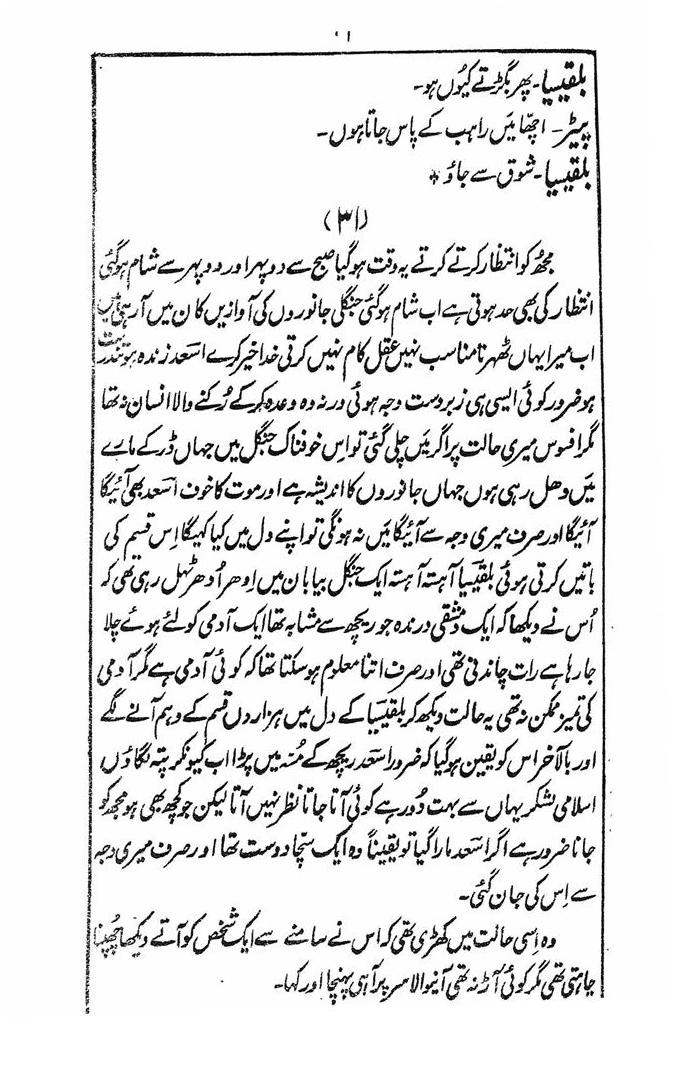 بلقیسیا۔ پھر بگڑتے کیوں ہو۔
پیٹر۔ اچھا میں راہب کے پاس جاتا ہوں۔
بلقیسیا۔ شوق سے جاؤ *
(۳۱)
مجھ کو انتظار کرتے کرتے یہ وقت ہو گیا صبح سے دوپہر اور دوپہر سے شام ہو گئی
انتظار کی بھی حد ہوتی ہے اب شام ہو گئی جنگلی جانوروں کی آوازیں کان میں آ رہی ہیں
اب میرا یہاں ٹھہرنا مناسب نہیں عقل کام نہیں کرتی خدا خیر کرے اسعد زندہ ہو تندرست
ہو ضرور کوئی ایسی ہی زبردست وجہ ہوئی ورنہ وہ وعدہ کر کے رُکنے والا انسان نہ تھا
مگر افسوس میری حالت پر اگر میں چلی گئی تو اِس خوفناک جنگل میں جہاں ڈر کے مارے
میں دھل رہی ہوں جہاں جانوروں کا اندیشہ ہے اور موت کا خوف اسعد بھی آئیگا
آئیگا اور صرف میری وجہ سے آئیگا میں نہ ہونگی تو اپنے دل میں کیا کہیگا اِس قسم کی
باتیں کرتی ہوئی بلقیسیا آہستہ آہستہ ایک جنگل بیابان میں اِدھر اُدھر ٹہل رہی تھی کہ
اُس نے دیکھا کہ ایک دمشقی درندہ جو ریچھ سے مشابہ تھا ایک آدمی کو لئے ہوئے چلا
جا رہا ہے رات چاندنی تھی اور صرف اتنا معلوم ہو سکتا تھا کہ کوئی آدمی ہے مگر آدمی
کی تمیز ممکن نہ تھی یہ حالت دیکھ کر بلقیسیا کے دل میں ہزاروں قسم کے وہم آنے لگے
اور بالآخر اس کو یقین ہو گیا کہ ضرور اسعد ریچھ کے مُنہ میں پڑا اب کیونکر پتہ لگاؤں
اسلامی لشکر یہاں سے بہت دُور ہے کوئی آتا جاتا نظر نہیں آتا لیکن جو کچھ بھی ہو مجھ کو
جانا ضرور ہے اگر اسعد مارا گیا تو یقیناً وہ ایک سچا دوست تھا اور صرف میری وجہ
سے اِس کی جان گئی۔
وہ اِسی حالت میں کھڑی تھی کہ اس نے سامنے سے ایک شخص کو آتے دیکھا چھپنا
چاہتی تھی مگر کوئی آڑ نہ تھی آنیوالا سر پر آ ہی پہنچا اور کہا۔